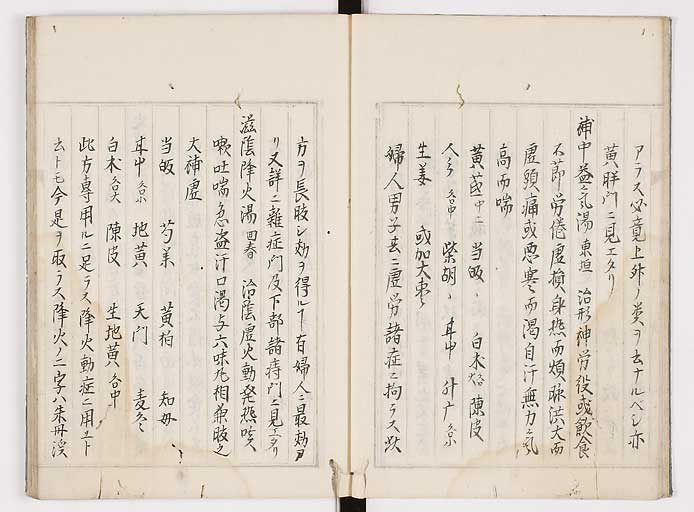 アラス必竟上外ノ炎ヲ云ナルベシ亦
黄胖門ニ見エタリ
補中益气湯 東垣 治形神労役或飲食
不節労倦虚損身热而煩脉洪大而
虚頭痛或悪寒而渇自汗無力气
高而喘
黄茋 中二 當皈 白朮 陳皮
人参 各中 柴胡 耳中 升广 各小
生姜 或加大枣
婦人男子共ニ虚労諸症ニ拘ラス此
方ヲ長服シ効ヲ得ル 有婦人ニ最効ヲ
リ又詳ニ雜症門及下部諸痔門ニ見エタリ
滋陰降火湯 回春 治陰虚火動発热咳
嗽吐喘急盗汗口渇与六味丸相兼服之
大補虚
當皈 芍薬 黄柏 知母
耳中 各小 地黄 天門 麦冬
白朮 各大 陳皮 生地黄 各中
此方専用ルニ足ラス降火動症ニ用ユト
云トモ今是ヲ取ラス降火ノ二字ハ朱丹溪